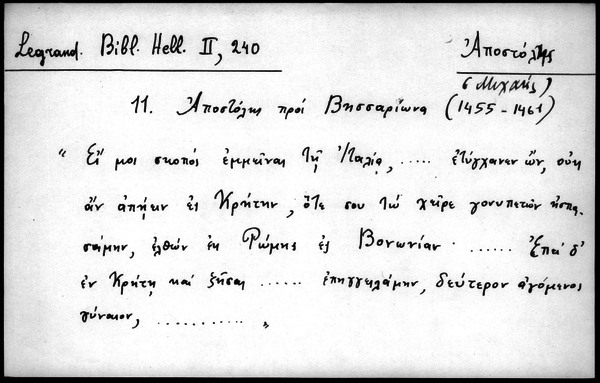 Legrand. Bibl. Hell. II, 240
Ἀποστόλης
(Μιχαήλ)
11. Ἀποστόλης πρὸς Βησσαρίωνα (1455-1461)
" Εἴ μοι σκοπὸς ἐμμεῖναι τῇ Ἰταλίᾳ, ..... ἐτύγχανεν ὤν, οὐκ
ἂν ἀπῄειν ἐς Κρήτην, ὅτε σου τὼ χεῖρε γονυπετῶν ἠσπα-
σάμην, ἐλθὼν ἐκ Ῥώμης ἐς Βονωνίαν· ...... Ἐπεὶ δ'
ἐν Κρήτῃ καὶ ζῆσαι ...... ἐπηγγειλάμην, δεύτερον ἀγόμενος
γύναιον, ........... "